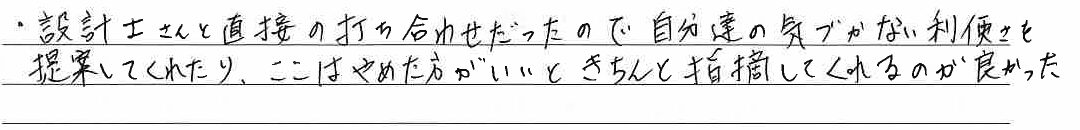 ・設計士さんと直接の打ち合わせだったので自分達の気づかない利便さを
提案してくれたり、ここはやめた方がいいときちんと指摘してくれるのが良かった